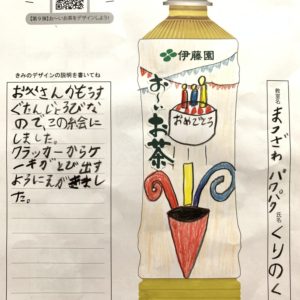 【第9弾】お〜いお茶をデザインしよう!
きみのデザインの説明を書いてね
お父さんがもうす
ぐたんじょうびな
ので、この糸会に
しました。
クラッカーからケ
ーキがとび出す
ようにえがきまし
た。
伊藤園
お〜いお茶
おめでとう
教室名
まつざわ
パクパク
氏名
くりのく